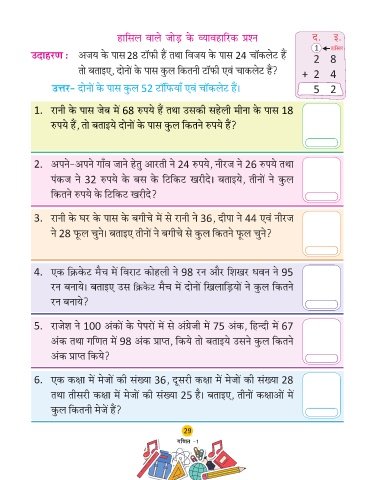 हासिल वाले जोड़ के व्यावहारिक प्रश्न
उदाहरण : अजय के पास 28 टॉफी हैं तथा विजय के पास 24 चॉकलेट हैं
तो बताइए, दोनों के पास कुल कितनी टॉफी एवं चाकलेट है?
उत्तर- दोनों के पास कुल 52 टॉफियाँ एवं चॉकलेट हैं।
द. इ.
1 हासिल
2 8
+ 2 4
5 2
1. रानी के पास जेब में 68 रुपये हैं तथा उसकी सहेली मीना के पास 18
रुपये हैं, तो बताइये दोनों के पास कुल कितने रुपये हैं?
2. अपने-अपने गाँव जाने हेतु आरती ने 24 रुपये, नीरज ने 26 रुपये तथा
पंकज ने 32 रुपये के बस के टिकिट खरीदे। बताइये, तीनों ने कुल
कितने रुपये के टिकिट खरीदे?
3. रानी के घर के पास के बगीचे में से रानी ने 36, दीपा ने 44 एवं नीरज
ने 28 फूल चुने। बताइए तीनों ने बगीचे से कुल कितने फूल चुने?
4. एक क्रिकेट मैच में विराट कोहली ने 98 रन और शिखर धवन ने 95
रन बनाये। बताइए उस क्रिकेट मैच में दोनों खिलाड़ियों ने कुल कितने
रन बनाये?
5. राजेश ने 100 अंकों के पेपरों में से अंग्रेजी में 75 अंक, हिन्दी में 67
अंक तथा गणित में 98 अंक प्राप्त, किये तो बताइये उसने कुल कितने
अंक प्राप्त किये?
6. एक कक्षा में मेजों की संख्या 36, दूसरी कक्षा में मेजों की संख्या 28
तथा तीसरी कक्षा में मेजों की संख्या 25 है। बताइए, तीनों कक्षाओं में
कुल कितनी मेजें हैं?
29
गणित -1